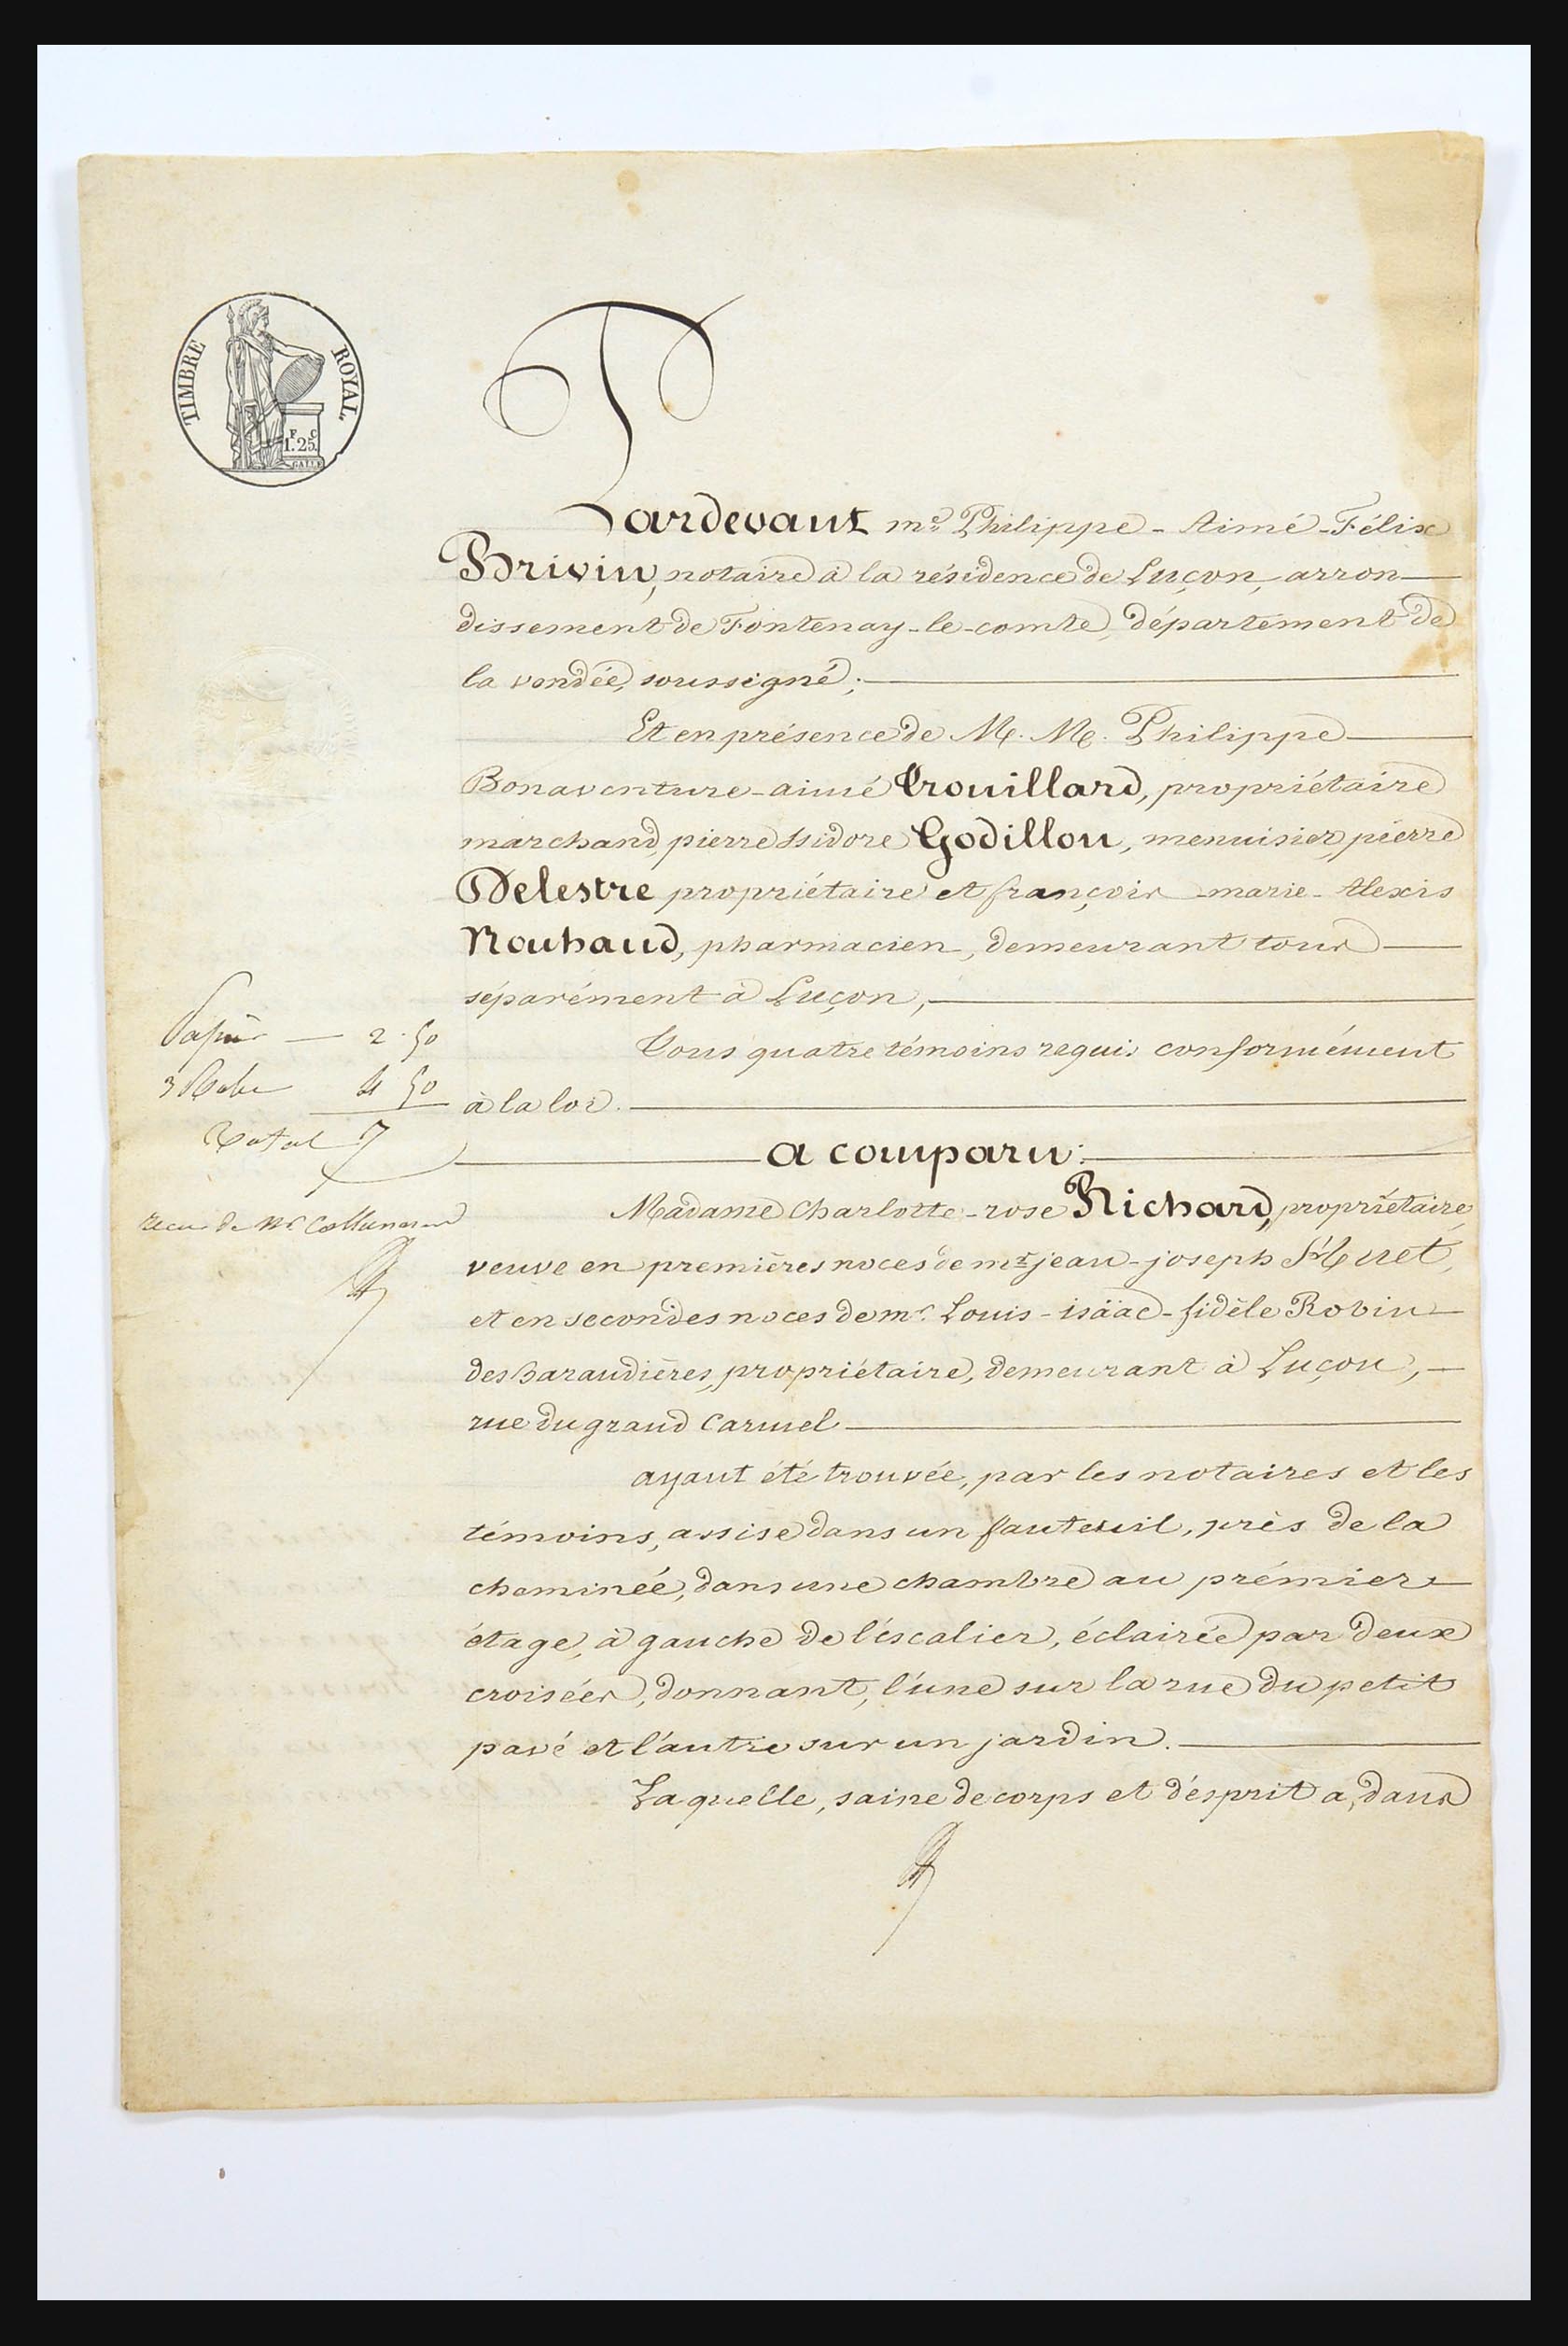 TIMBRE ROYAL
F C
1.25
GALLE
Pardevant me Philippe - Aimé - Félix
Brivin, notaire à la résidence de Luçon, arron-
dissement de Fontenay-le-comte, département de
la vendée, soussigné;
Et en présence de M. M. Philippe
Bonaventure-aimé Trouillard, propriétaire
marchand, pierre Isidore Godillon, menuisier, pierre
Delestre propriétaire et françois - marie - Alexis
Nouhaud, pharmacien, demeurant tous
séparément à Luçon,
Tous quatre témoins requis conformément
à la loi.
a comparu:
Madame Charlotte-rose Richard, propriétaire,
veuve en premières noces de mr jean-joseph Huet,
et en secondes noces de mr Louis - isäac - fidèle Robin
des baraudières, propriétaire, demeurant à Luçon,
rue du grand Carmel
ayant été trouvée, par les notaires et les
témoins, assise dans un fauteuil, près de la
cheminée, dans une chambre au prémier
étage, à gauche de l'éscalier, éclairée par deux
croisées, donnant, l'une sur la rue du petit
pavé et l'autre sur un jardin.
Laquelle, saine de corps et d'ésprit a, dans
Papier 2.50
3 4 50
Total 7
recu de Mr